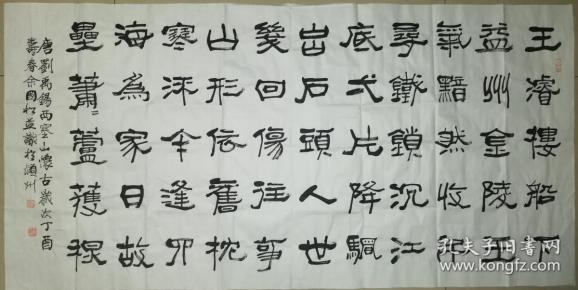 王濬樓船下
益州金陵王
氣黯然收千
尋鐵鎖沉江
底弌片降幡
出石頭人世
幾回傷往事
山形依舊枕
寒流今逢四
海為家日故
壘蕭〻蘆荻秋
唐劉禹錫西塞山懷古歲次丁酉
壽春余國松並識於潁州
孔夫子旧书网
www.kongfz.com